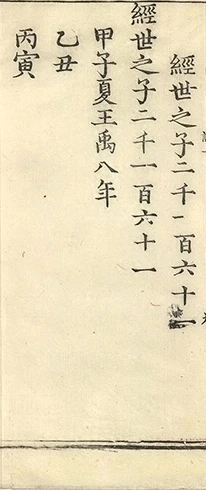 經世之子二千一百六十一
經世之子二千一百六十一
甲子夏王禹八年
乙丑
丙寅